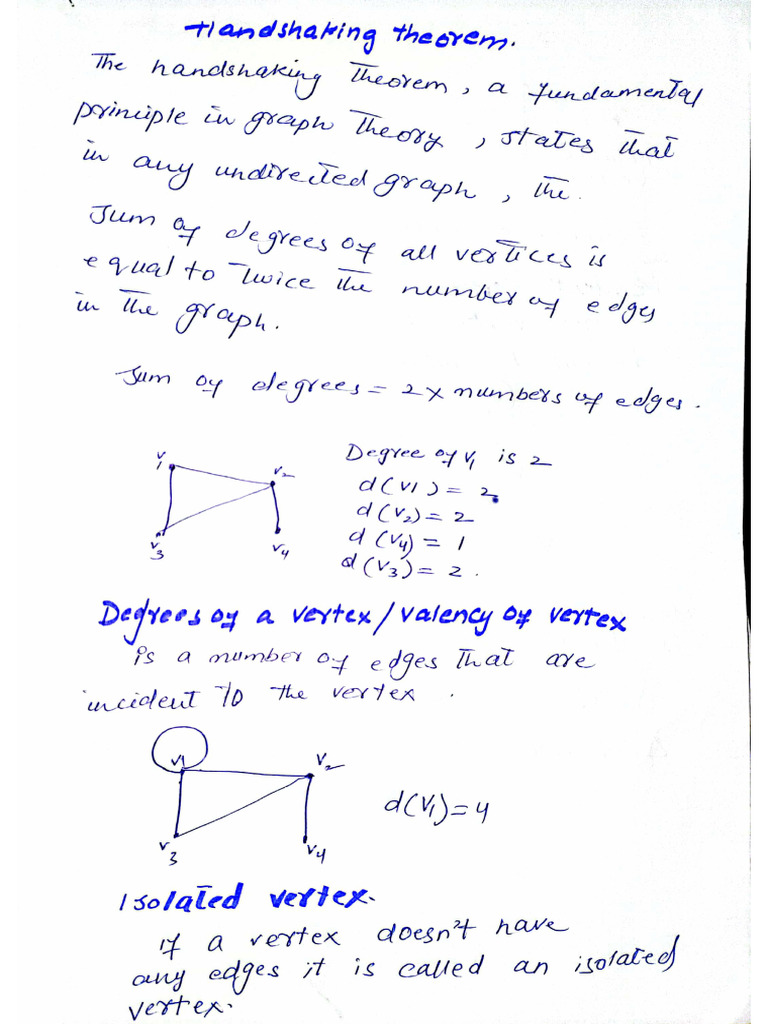 Handshaking theorem.
The handshaking Theorem, a fundamental
principle in graph Theory, states that
in any undirected graph, the.
Sum of degrees of all vertices is
equal to Twice the number of edges
in the graph.
Sum of degrees = 2 x numbers of edges.
V1
V2
V3
V4
Degree of V1 is 2
d(V1) = 2
d(V2) = 2
d(V4) = 1
d(V3) = 2.
Degrees of a vertex/valency of vertex
is a number of edges that are
incident to the vertex.
V1
V2
V3
V4
d(V1)=4
Isolated vertex.
if a vertex doesn't have
any edges it is called an isolated
vertex.